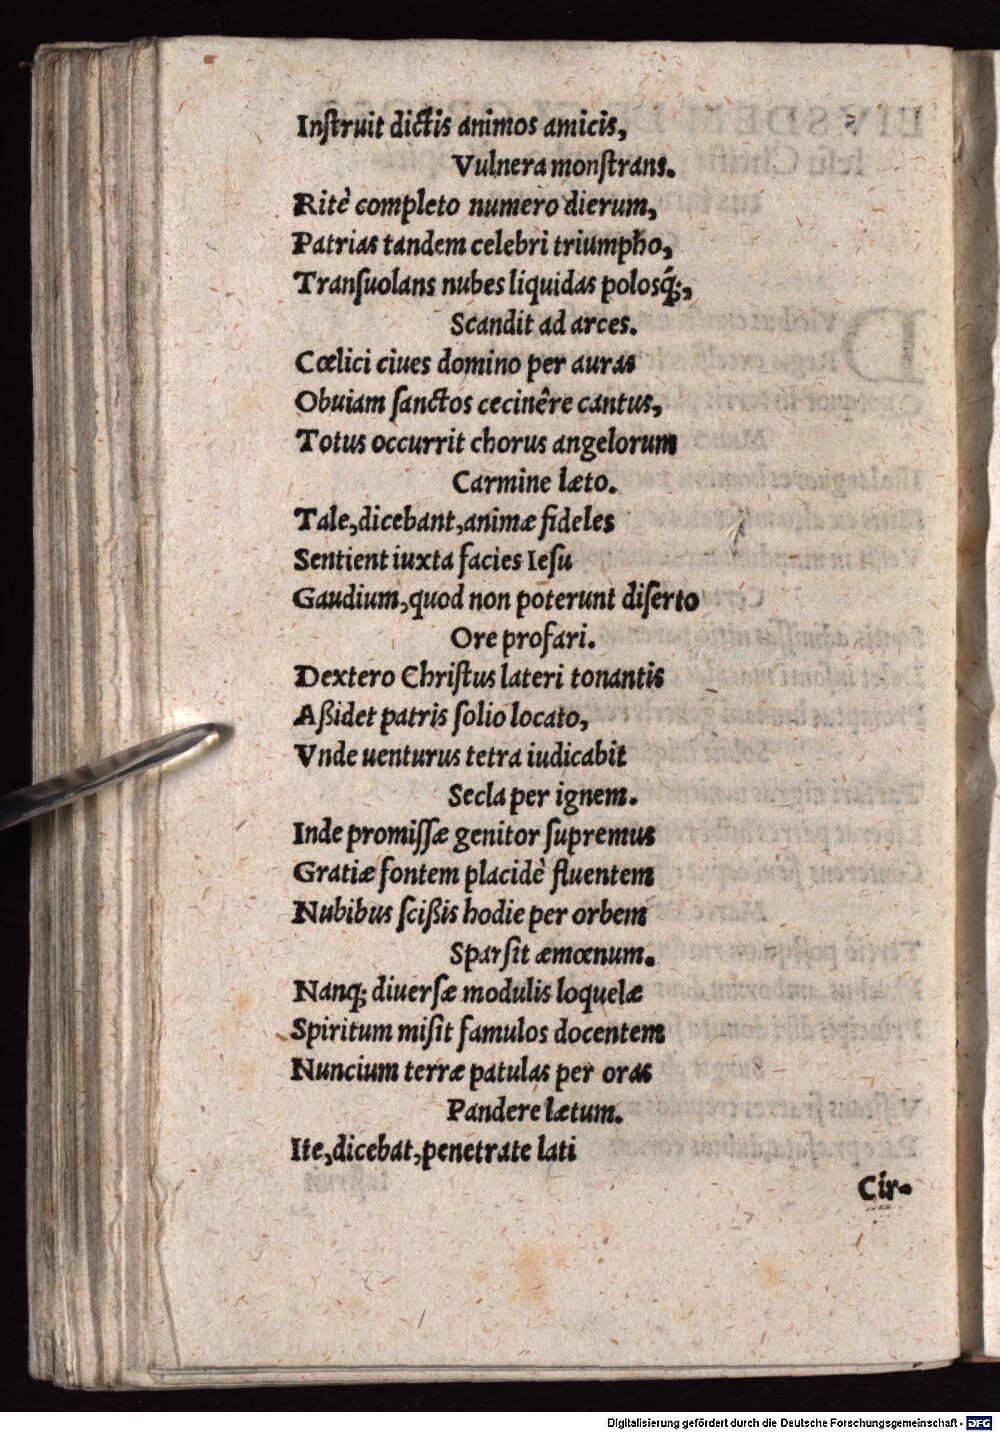 Inſtruit dictis animos amicis,
Vulnera monſtrans.
Ritè completo numero dierum,
Patrias tandem celebri triumpho,
Tranſuolans nubes liquidas polosq́;,
Scandit ad arces.
Cœlici ciues domino per auras
Obuiam ſanctos cecinêre cantus,
Totus occurrit chorus angelorum
Carmine læto.
Tale, dicebant, animæ fideles
Sentient iuxta facies Ieſu
Gaudium, quod non poterunt diſerto
Ore profari.
Dextero Chriſtus lateri tonantis
Aßidet patris ſolio locato,
Vnde uenturus tetra iudicabit
Secla per ignem.
Inde promiſſæ genitor ſupremus
Gratiæ fontem placidè fluentem
Nubibus ſcißis hodie per orbem
Sparſit æmœnum.
Nanq; diuerſæ modulis loquelæ
Spiritum miſit famulos docentem
Nuncium terræ patulas per oras
Pandere lætum.
Ite, dicebat, penetrate lati
Cir-
Digitalisierung gefördert durch die Deutsche Forschungsgemeinschaft - DFG